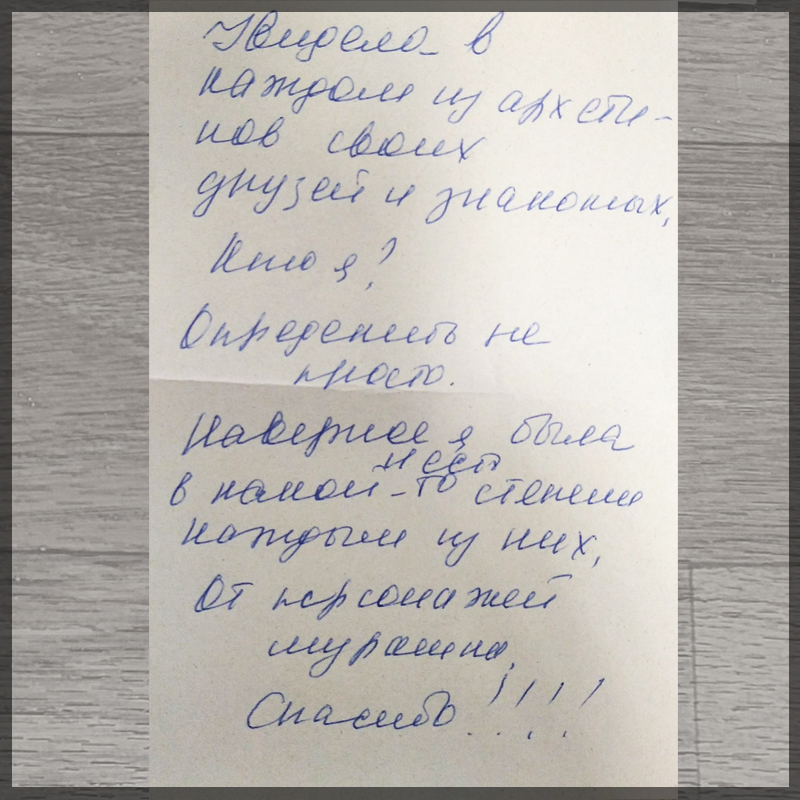 Увидела в
каждом из архети-
пов своих
друзей и знакомых,
Кто я?
Определить не
просто.
Наверное я была
и есть
в какой-то степени
каждым из них,
От персонажей
мурашки,
Спасибо!!!!